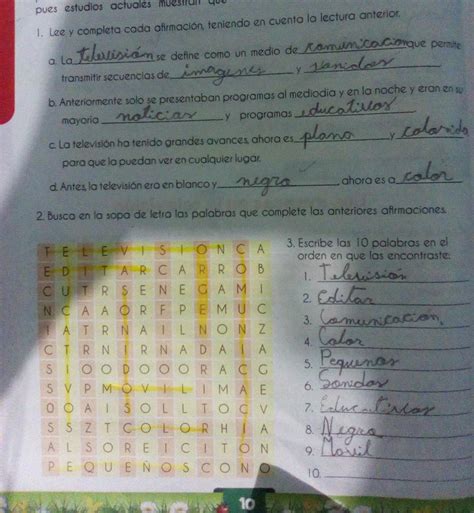 pues estudios actuales muestran que
1. Lee y completa cada afirmación, teniendo en cuenta la lectura anterior.
a. La televisión se define como un medio de comunicación que permite
transmitir secuencias de imagenes y sonidos
b. Anteriormente solo se presentaban programas al mediodía y en la noche, y eran en su
mayoría noticias y programas educativos
c. La televisión ha tenido grandes avances, ahora es plana y colorida
para que la puedan ver en cualquier lugar.
d. Antes, la televisión era en blanco y negro ahora es a color
2. Busca en la sopa de letra las palabras que complete las anteriores afirmaciones.
3. Escribe las 10 palabras en el
orden en que las encontraste:
T E L E V I S I O N C A
E D I T A R C A R R O B
C U T R S E N E G A M I
N C A A O R F P E M U C
I A T R N A I L N O N Z
C T R N I R N A D A I A
S I O O D O O O R A C G
S V P M O V I L I M A E
O O A I S O L L T O C V
S S Z T C O L O R H I A
A L S O R E I C I T O N
P E Q U E Ñ O S C O N O
1. Television
2. Editar
3. Comunicacion,
4. Color
5. Pequeños
6. Sonidos
7. Educativos
8. Negro
9. Movil
10.
10